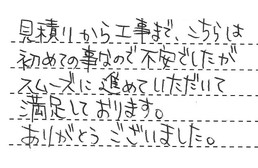 見積りから工事まで、こちらは
初めての事なので不安でしたが
スムーズに進めていただいて
満足しております。
ありがとうございました。